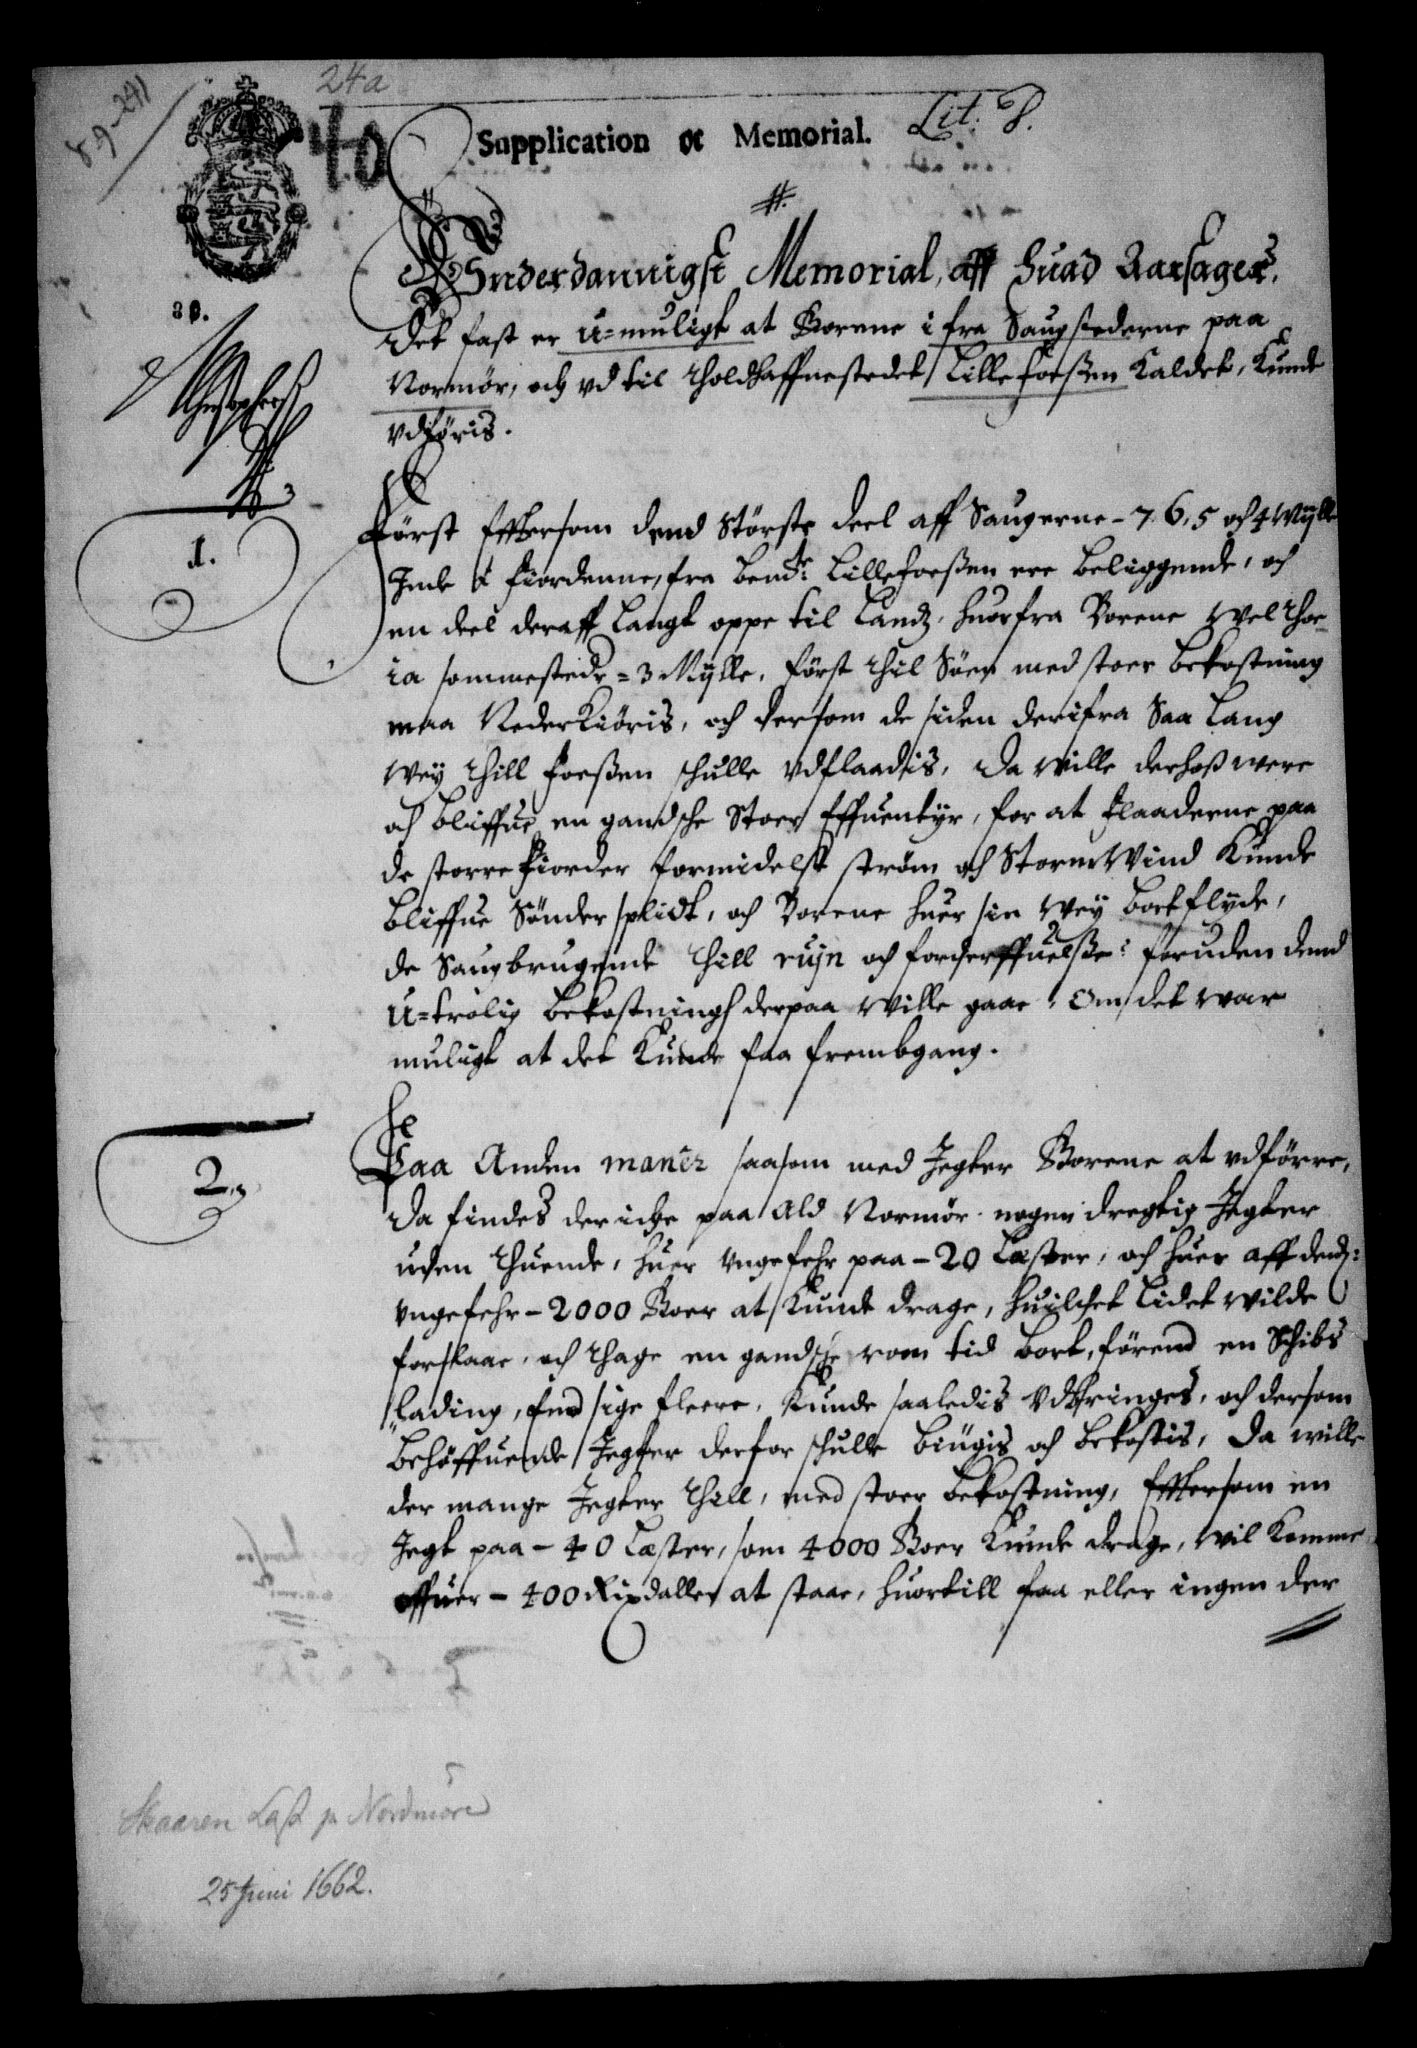 89-241
24a
40
Supplication oc Memorial.
Lit: P.
Underdannigst Memorial, aff huad Aarsager,
Det fast er U=muligt at Borene i fra Saugstederne paa
Normør, och vd til tholdhaffnestedet Lillefoeßen Kaldet, Kunde
vdføris.
1.
Først Effersom dend Største deel aff Saugerne - 7. 6. 5 och 4 Mylle
Inde i fiordenne, fra bende Lillefoeßen ere beliggende, och
en deel deraff Langt oppe til Landz, huorfra Borene Wel thoe
ia sommestedz = 3 Mylle, først thil Søen med stoer bekostning
maa Nederkiøris, och dersom de siden derifra Saa Lang
Wey thill foeßen schulle vdflaadis, da wille derhoß were
och bliffue en gandsche Stoer Effuentyr, for at flaaderne paa
de storre fiorder formidelst strøm och StormWind Kunde
bliffue Sønder splidt, och Borene huer sin Wey bortflyde,
de Saugbrugende thill ruin och forderffuelße: foruden dend
U=trolig bekostningh derpaa wille gaae, Om det war
muligt at det Kunde faa frembgang.
2.
Paa Anden manér saasom med Jegter Borene at vdførre,
da findes der icke paa Ald Normør nogen dregtig Jegter
uden thuende, huer vngefehr paa - 20 Læster, och huer aff dend:
vngefehr - 2000 Boer at Kunde drage, huilchet Lidet wilde
forslaae, och thage en gandsche rom tid bort, førend en Schibs
Lading, end sige fleere, Kunde saaledis Vdbringes, och dersom
behøffuende Jegter derfor schulle biugis och bekostis, da wille
der mange Jegter thill, med stoer bekostning, Effersom en
Jegt paa - 40 Læster, som 4000 Boer Kunde drage, wil Komme
offuer - 400 Rixdaller at staae, huortill faa eller ingen der
Skaaren Last p Nordmöre
25 Juni 1662.